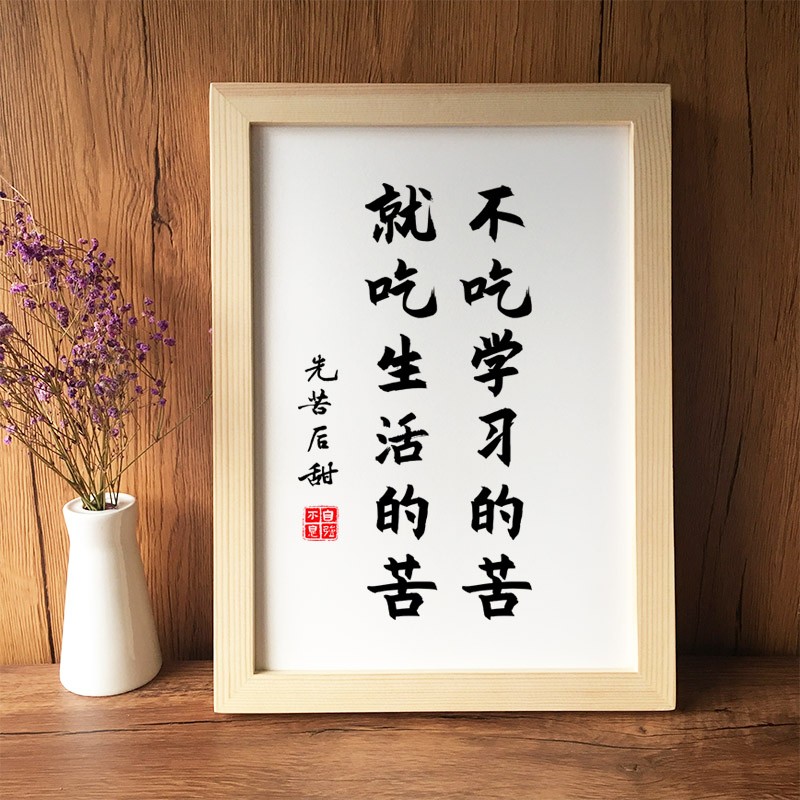 不吃学习的苦
就吃生活的苦
先苦后甜
自强不息